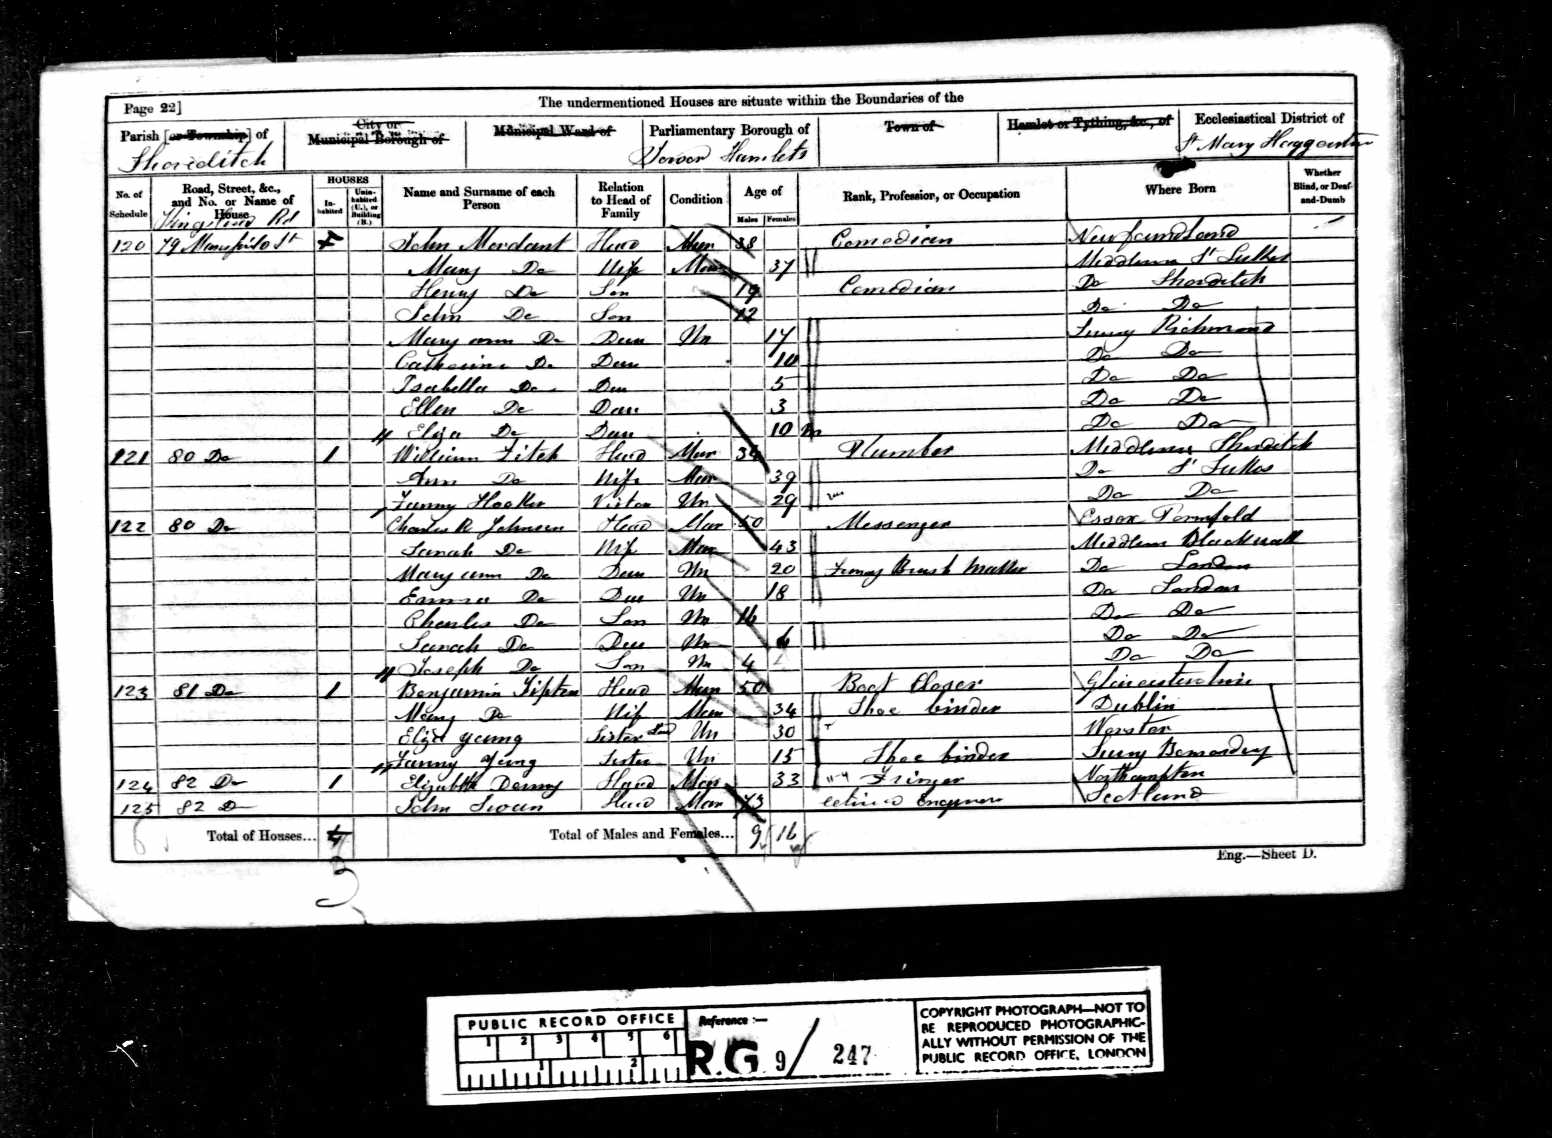 Page 22]
The undermentioned Houses are situate within the Boundaries of the
Parish [or Township] of
City or Municipal Borough of
Municipal Ward of
Parliamentary Borough of
Town of
Hamlet or Tything, &c., of
Ecclesiastical District of
Shoreditch
Tower Hamlets
St Mary Haggerston
No. of Schedule
Road, Street, &c., and No. or Name of House
HOUSES
Inhabited
Uninhabited (U.), or Building (B.)
Name and Surname of each Person
Relation to Head of Family
Condition
Age of
Males
Females
Rank, Profession, or Occupation
Where Born
Whether Blind, or Deaf-and-Dumb
Kingsland Rd
120 79 St John Mordant Head Mar 38 Comedian Newfoundland
Mary Do Wife Mar 37 Middlesex St Lukes
Henry Do Son 19 Comedian Do Shoreditch
John Do Son 12 Do Do
Mary ann Do Dau Un 17 Surry Richmond
Catherine Do Dau 10 Do Do
Isabella Do Dau 5 Do Do
Ellen Do Dau 3 Do Do
Eliza Do Dau 10 m Do Do
121 80 Do 1 William Fitch Head Mar 34 Plumber Middlesex Shoreditch
Ann Do Wife Mar 39 Do St Lukes
Fanny Hooker Visitor Un 29 Do Do
122 80 Do Charles R Johnson Head Mar 50 Messenger Essex
Sarah Do Wife Mar 43 Middlesex Blackwall
Mary ann Do Dau Un 20 Fancy Brush Maker Do London
Emma Do Dau Un 18 Do London
Charles Do Son Un 16 Do Do
Sarah Do Dau Un 6 Do Do
Joseph Do Son Un 4 Do Do
123 81 Do 1 Benjamin Head Mar 50 Boot Closer Glocestershire
Mary Do Wife Mar 34 Shoe binder Dublin
Eliza Young Sister Law Un 30
Fanny Young Sister Un 15 Shoe binder Surry
124 82 Do 1 Elizabeth Head Mar 33 Fringer Northampton
125 82 Do John Swan Head Mar 73 retired Engineer Scotland
Total of Houses... 4
Total of Males and Females... 9 16
3
Eng.—Sheet D.
PUBLIC RECORD OFFICE
1 2 3 4 5 6
1 2
Reference :—
R.G. 9/ 247
COPYRIGHT PHOTOGRAPH—NOT TO
BE REPRODUCED PHOTOGRAPHIC-
ALLY WITHOUT PERMISSION OF THE
PUBLIC RECORD OFFICE, LONDON